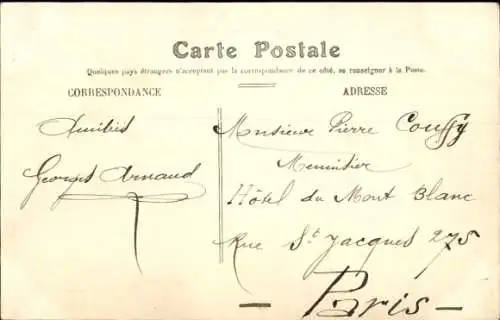 Carte Postale
Quelques pays étrangers n'acceptent pas la correspondance de ce côté, se renseigner à la Poste.
CORRESPONDANCE
ADRESSE
Amitiés
Georges Arnaud
Monsieur Pierre Coussy
Menuisier
Hôtel du Mont Blanc
Rue St Jacques 275
Paris